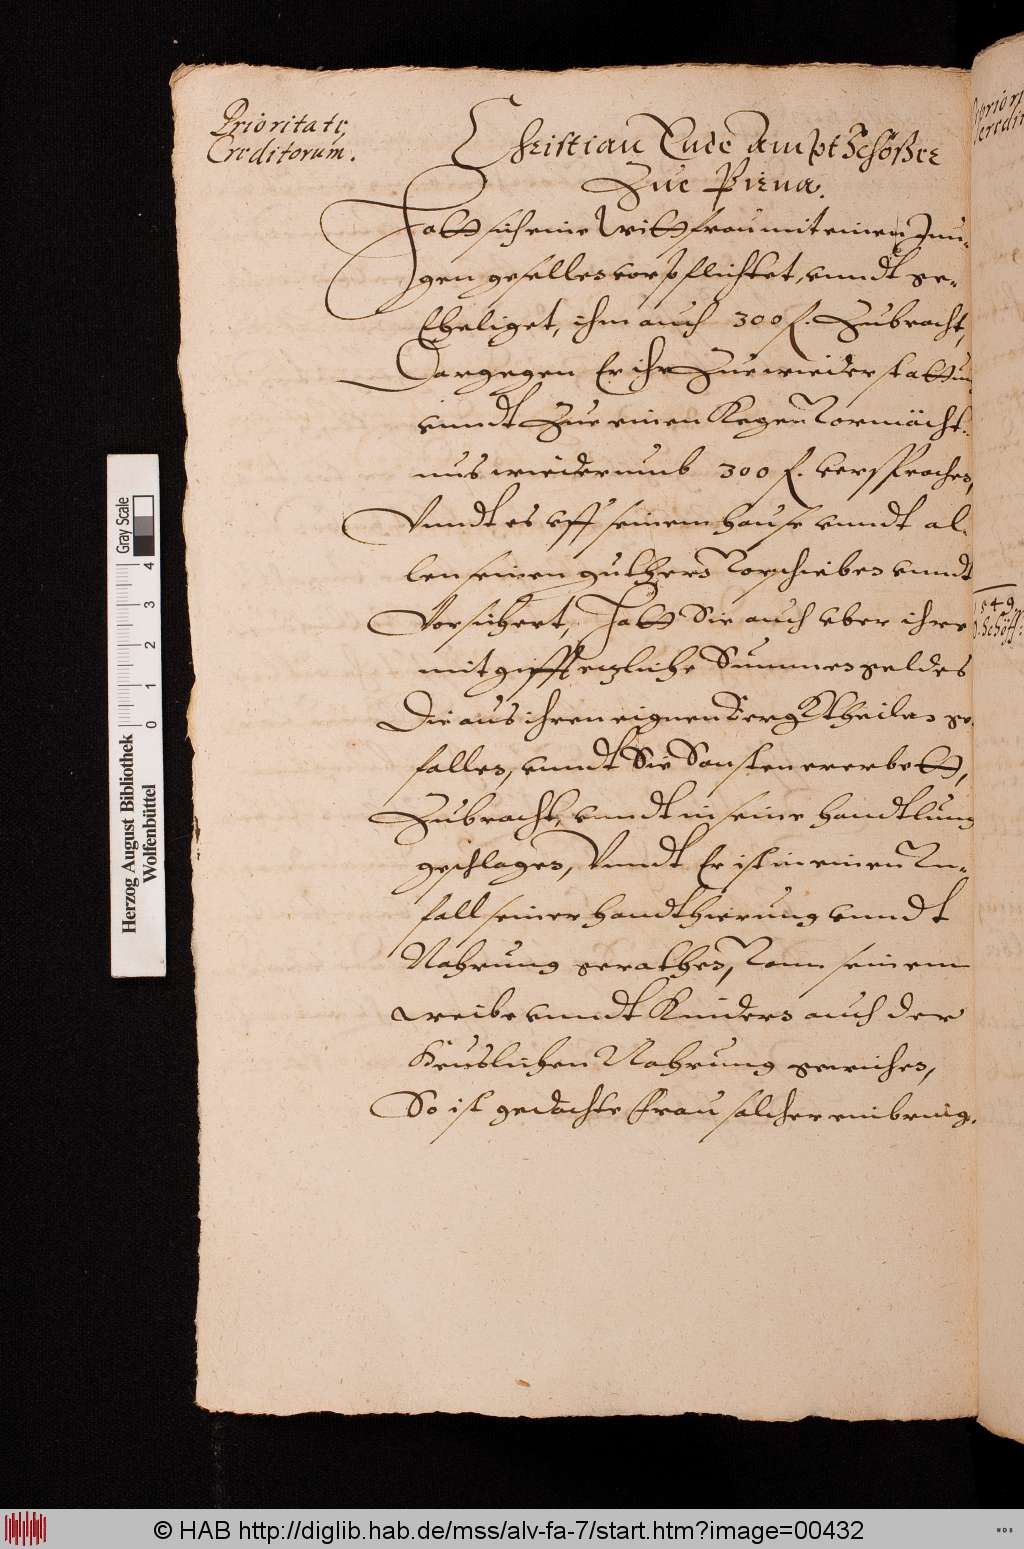 Prioritate
Creditorum.
Christian Lude Ampt Schößer
Zue Pirna.
Hatt sich eine Wittfrau mit einem Jun-
gen gesellen vorpflichtet, vnndt ge-
Eheliget, ihm auch 300 f. Zubracht,
Dargegen Er ihr Zue wiederstattung
vnndt Zue einen Kegen Vormächt-
nus wiederumb 300 f. versprochen,
Vnndt es vff seinem hause vnndt al-
len seinen guthern Vorschrieben vnndt
Vorsichert, Hatt Sie auch vber ihre
mitgifft etzliche Summen geldes
Die aus ihren eignen Bergktheilen ge-
fallen, vnndt Sie Sonsten ererbett,
Zubracht, vnndt in seine handtlung
geschlagen, Vnndt Er ist in einen Vn-
fall seiner handthierung vnndt
Nahrung gerathen, Vonn seinem
weibe vnndt Kindern auch der
Heuslichen Nahrung gewichen,
So ist gedachte Frau solcher einbring-
1549
Schöff
Gray Scale
0 1 2 3 4
Herzog August Bibliothek
Wolfenbüttel
© HAB http://diglib.hab.de/mss/alv-fa-7/start.htm?image=00432